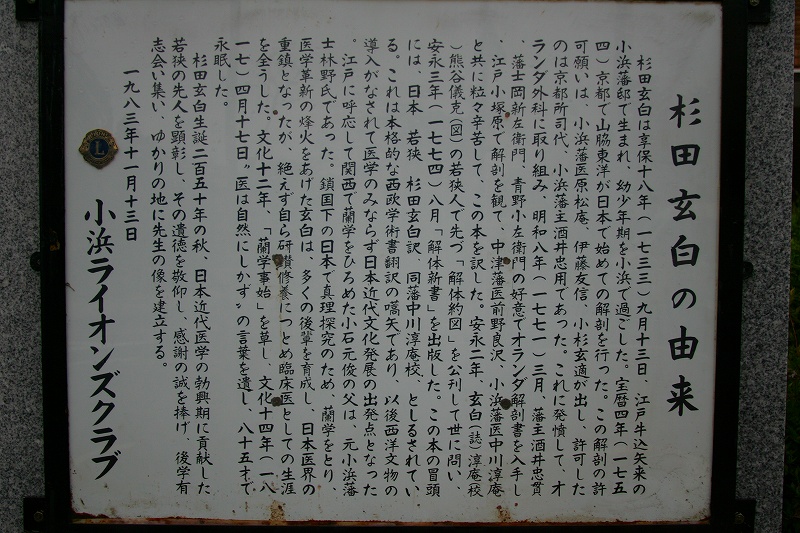 杉田玄白の由来
杉田玄白は享保十八年(一七三三)九月十三日、江戸牛込矢来の
小浜藩邸で生まれ、幼少年期を小浜で過ごした。宝暦四年(一七五
四)京都で山脇東洋が日本で始めての解剖を行った。この解剖の許
可願いは、小浜藩医原松庵、伊藤友信、小杉玄適が出し、許可した
のは京都所司代、小浜藩主酒井忠用であった。これに発憤して、オ
ランダ外科に取り組み、明和八年(一七七一)三月、藩主酒井忠貫
、藩士岡新左衛門、青野小左衛門の好意でオランダ解剖書を入手し
、江戸小塚原で解剖を観て、中津藩医前野良沢、小浜藩医中川淳庵
と共に粒々辛苦して、この本を訳した。安永二年、玄白(誌)淳庵(校
)熊谷儀克(図)の若狭人で先づ「解体約図」を公刊して世に問い、
安永三年(一七七四)八月「解体新書」を出版した。この本の冒頭
には、日本 若狭 杉田玄白訳、同藩中川淳庵校、としるされてい
る。これは本格的な西欧学術書翻訳の嚆矢であり、以後西洋文物の
導入がなされて医学のみならず日本近代文化発展の出発点となった
。江戸に呼応して関西で蘭学をひろめた小石元俊の父は、元小浜藩
士林野氏であった。鎖国下の日本で真理探究のため 蘭学をとり、
医学革新の烽火をあげた玄白は、多くの後輩を育成し、日本医界の
重鎮となったが、絶えず自ら研鑽修養につとめ臨床医としての生涯
を全うした。文化十二年、「蘭学事始」を草し、文化十四年(一八
一七)四月十七日〝医は自然にしかず〟の言葉を遺し、八十五才で
永眠した。
杉田玄白生誕二百五十年の秋、日本近代医学の勃興期に貢献した
若狭の先人を顕彰し、その遺徳を敬仰し、感謝の誠を捧げ、後学有
志会い集い、ゆかりの地に先生の像を建立する。
一九八三年十一月十三日
L
小浜ライオンズクラブ